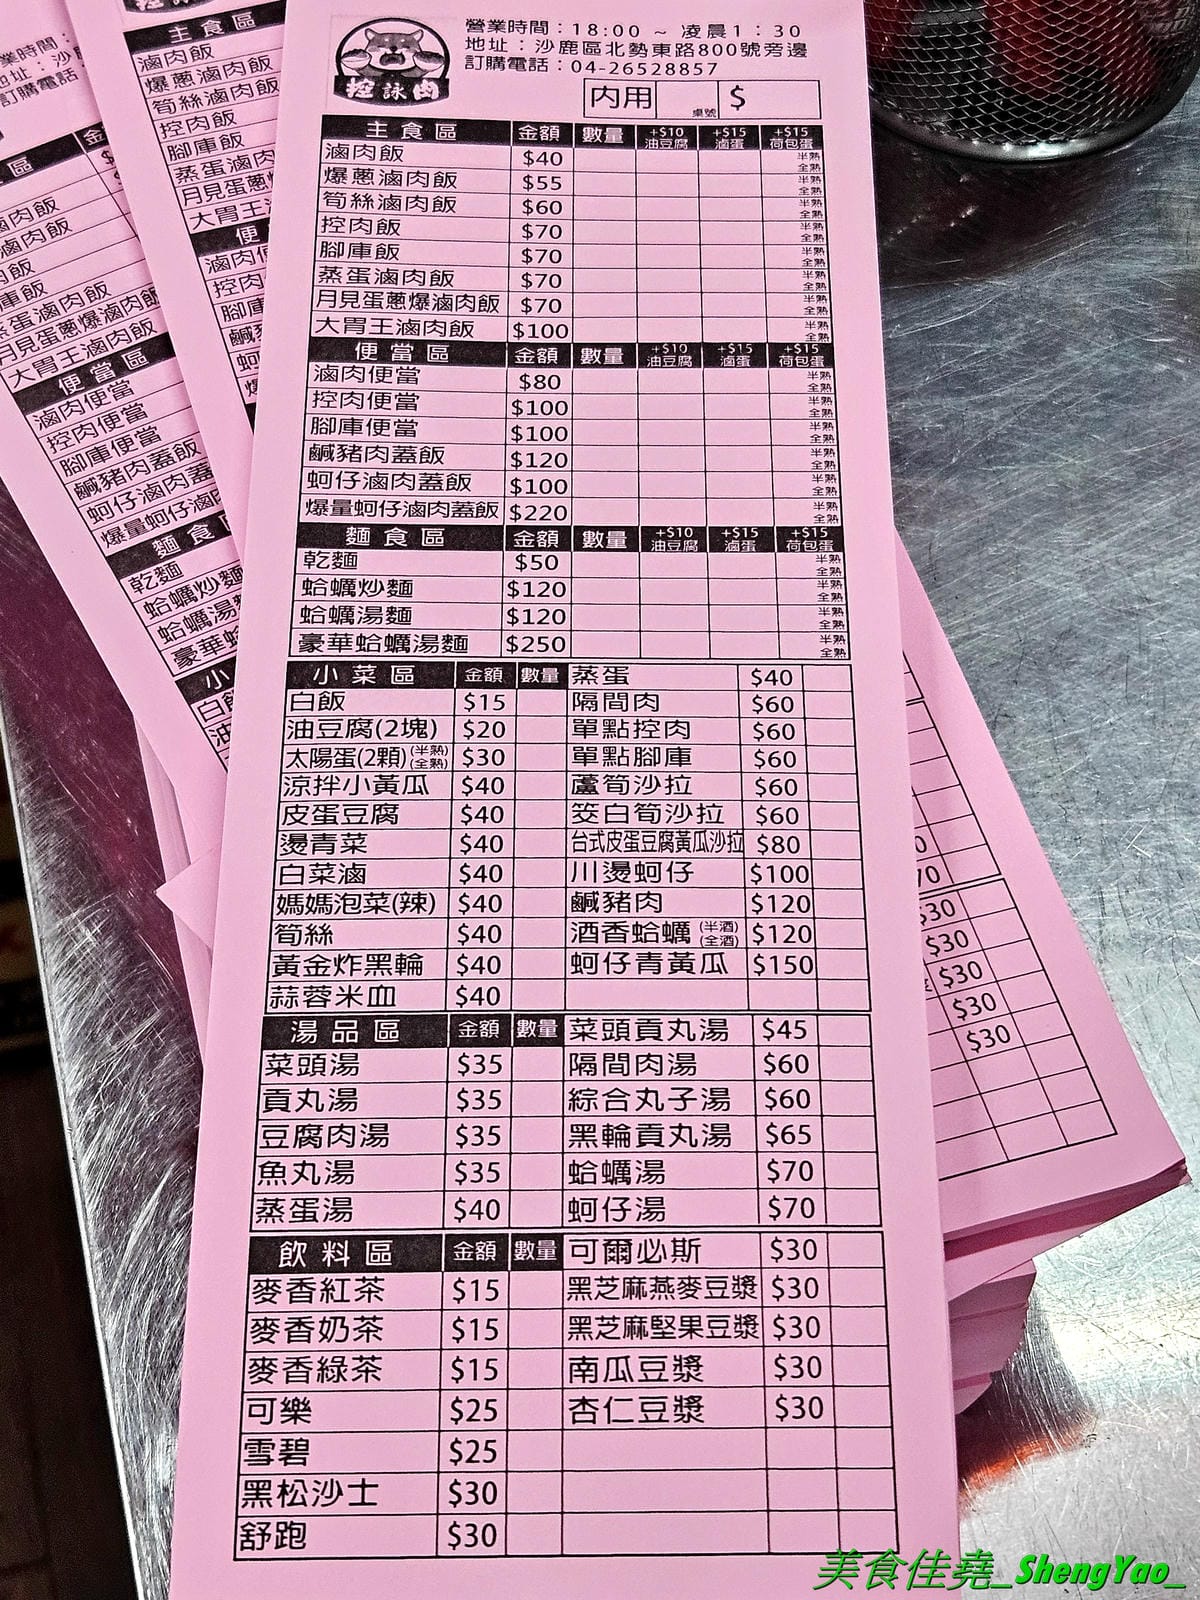 控詠肉
營業時間：18:00 ~ 凌晨1：30
地址：沙鹿區北勢東路800號旁邊
訂購電話：04-26528857
內用 桌號 $
主食區 金額 數量 +$10油豆腐 +$15滷蛋 +$15荷包蛋
滷肉飯 $40 半熟 全熟
爆蔥滷肉飯 $55 半熟 全熟
筍絲滷肉飯 $60 半熟 全熟
控肉飯 $70 半熟 全熟
腳庫飯 $70 半熟 全熟
蒸蛋滷肉飯 $70 半熟 全熟
月見蛋蔥爆滷肉飯 $70 半熟 全熟
大胃王滷肉飯 $100 半熟 全熟
便當區 金額 數量 +$10油豆腐 +$15滷蛋 +$15荷包蛋
滷肉便當 $80 半熟 全熟
控肉便當 $100 半熟 全熟
腳庫便當 $100 半熟 全熟
鹹豬肉蓋飯 $120 半熟 全熟
蚵仔滷肉蓋飯 $100 半熟 全熟
爆量蚵仔滷肉蓋飯 $220 半熟 全熟
麵食區 金額 數量 +$10油豆腐 +$15滷蛋 +$15荷包蛋
乾麵 $50 半熟 全熟
蛤蠣炒麵 $120 半熟 全熟
蛤蠣湯麵 $120 半熟 全熟
豪華蛤蠣湯麵 $250 半熟 全熟
小菜區 金額 數量 蒸蛋 $40
白飯 $15 隔間肉 $60
油豆腐(2塊) $20 單點控肉 $60
太陽蛋(2顆)(半熟)(全熟) $30 單點腳庫 $60
涼拌小黃瓜 $40 蘆筍沙拉 $60
皮蛋豆腐 $40 筊白筍沙拉 $60
燙青菜 $40 台式皮蛋豆腐黃瓜沙拉 $80
白菜滷 $40 川燙蚵仔 $100
媽媽泡菜(辣) $40 鹹豬肉 $120
筍絲 $40 酒香蛤蠣(半酒)(全酒) $120
黃金炸黑輪 $40 蚵仔青黃瓜 $150
蒜蓉米血 $40
湯品區 金額 數量 菜頭貢丸湯 $45
菜頭湯 $35 隔間肉湯 $60
貢丸湯 $35 綜合丸子湯 $60
豆腐肉湯 $35 黑輪貢丸湯 $65
魚丸湯 $35 蛤蠣湯 $70
蒸蛋湯 $40 蚵仔湯 $70
飲料區 金額 數量 可爾必斯 $30
麥香紅茶 $15 黑芝麻燕麥豆漿 $30
麥香奶茶 $15 黑芝麻堅果豆漿 $30
麥香綠茶 $15 南瓜豆漿 $30
可樂 $25 杏仁豆漿 $30
雪碧 $25
黑松沙士 $30
舒跑 $30
美食佳堯_ShengYao_